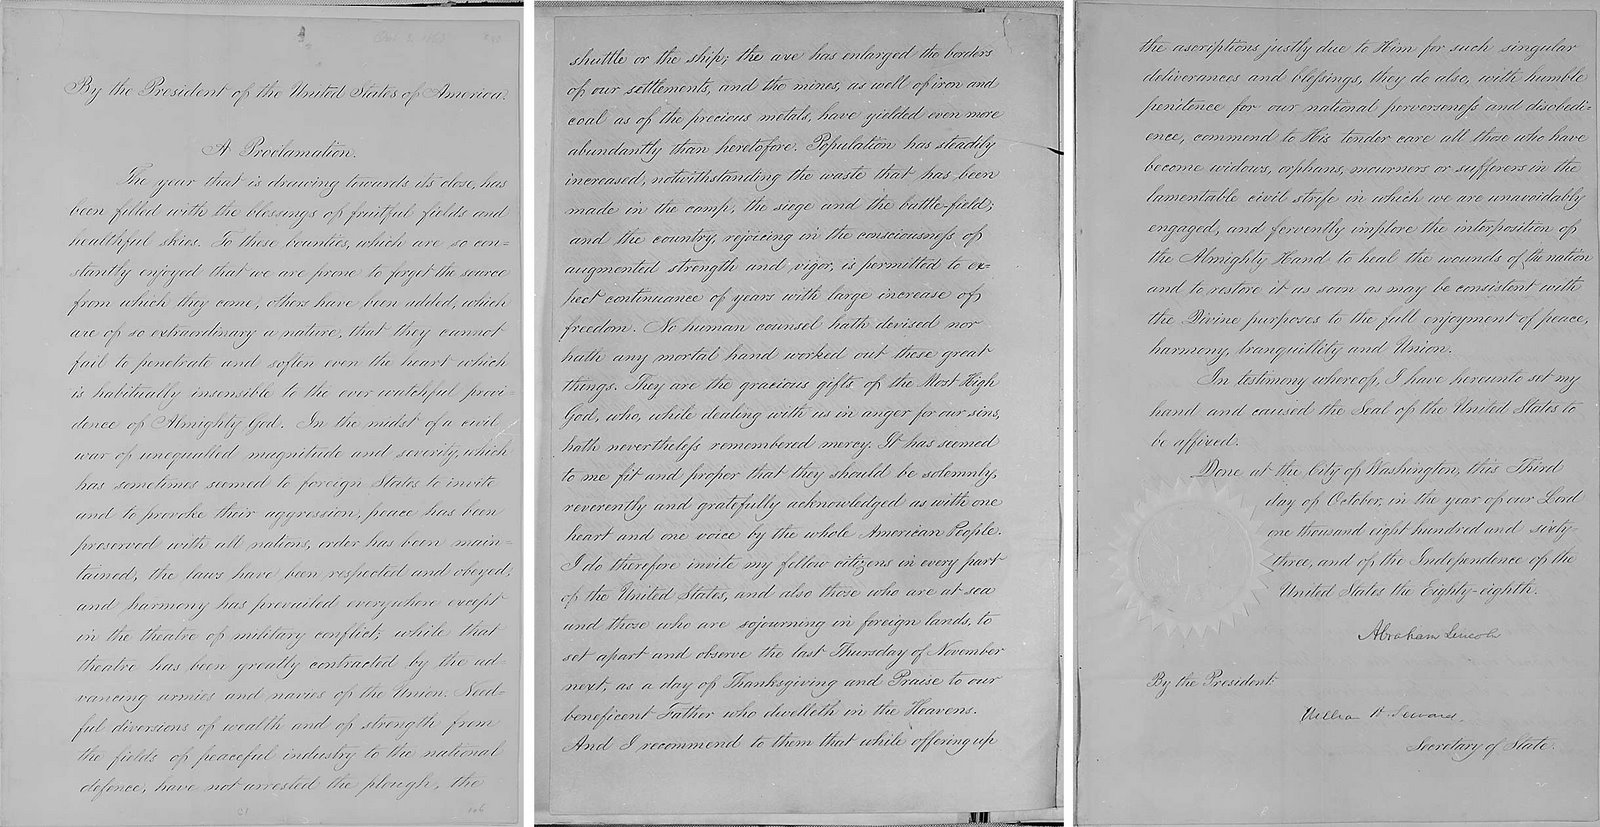 By the President of the United States of America.
A Proclamation.
The year that is drawing towards its close, has
been filled with the blessings of fruitful fields and
healthful skies. To these bounties, which are so con=
stantly enjoyed that we are prone to forget the source
from which they come, others have been added, which
are of so extraordinary a nature, that they cannot
fail to penetrate and soften even the heart which
is habitually insensible to the ever watchful provi=
dence of Almighty God. In the midst of a civil
war of unequalled magnitude and severity, which
has sometimes seemed to foreign States to invite
and to provoke their aggression, peace has been
preserved with all nations, order has been main=
tained, the laws have been respected and obeyed,
and harmony has prevailed everywhere except
in the theatre of military conflict; while that
theatre has been greatly contracted by the ad=
vancing armies and navies of the Union. Need=
ful diversions of wealth and of strength from
the fields of peaceful industry to the national
defence, have not arrested the plough, the
shuttle or the ship; the axe has enlarged the borders
of our settlements, and the mines, as well of iron and
coal as of the precious metals, have yielded even more
abundantly than heretofore. Population has steadily
increased, notwithstanding the waste that has been
made in the camp, the siege and the battle-field;
and the country, rejoicing in the consciousness of
augmented strength and vigor, is permitted to ex=
pect continuance of years with large increase of
freedom. No human counsel hath devised nor
hath any mortal hand worked out these great
things. They are the gracious gifts of the Most High
God, who, while dealing with us in anger for our sins,
hath nevertheless remembered mercy. It has seemed
to me fit and proper that they should be solemnly,
reverently and gratefully acknowledged as with one
heart and one voice by the whole American People.
I do therefore invite my fellow citizens in every part
of the United States, and also those who are at sea
and those who are sojourning in foreign lands, to
set apart and observe the last Thursday of November
next, as a day of Thanksgiving and Praise to our
beneficent Father who dwelleth in the Heavens.
And I recommend to them that while offering up
the ascriptions justly due to Him for such singular
deliverances and blessings, they do also, with humble
penitence for our national perverseness and disobedi=
ence, commend to His tender care all those who have
become widows, orphans, mourners or sufferers in the
lamentable civil strife in which we are unavoidably
engaged, and fervently implore the interposition of
the Almighty Hand to heal the wounds of the nation
and to restore it as soon as may be consistent with
the Divine purposes to the full enjoyment of peace,
harmony, tranquillity and Union.
In testimony whereof, I have hereunto set my
hand and caused the Seal of the United States to
be affixed.
Done at the City of Washington, this Third
day of October, in the year of our Lord
one thousand eight hundred and sixty-
three, and of the Independence of the
United States the Eighty-eighth.
Abraham Lincoln
By the President:
William H. Seward,
Secretary of State.